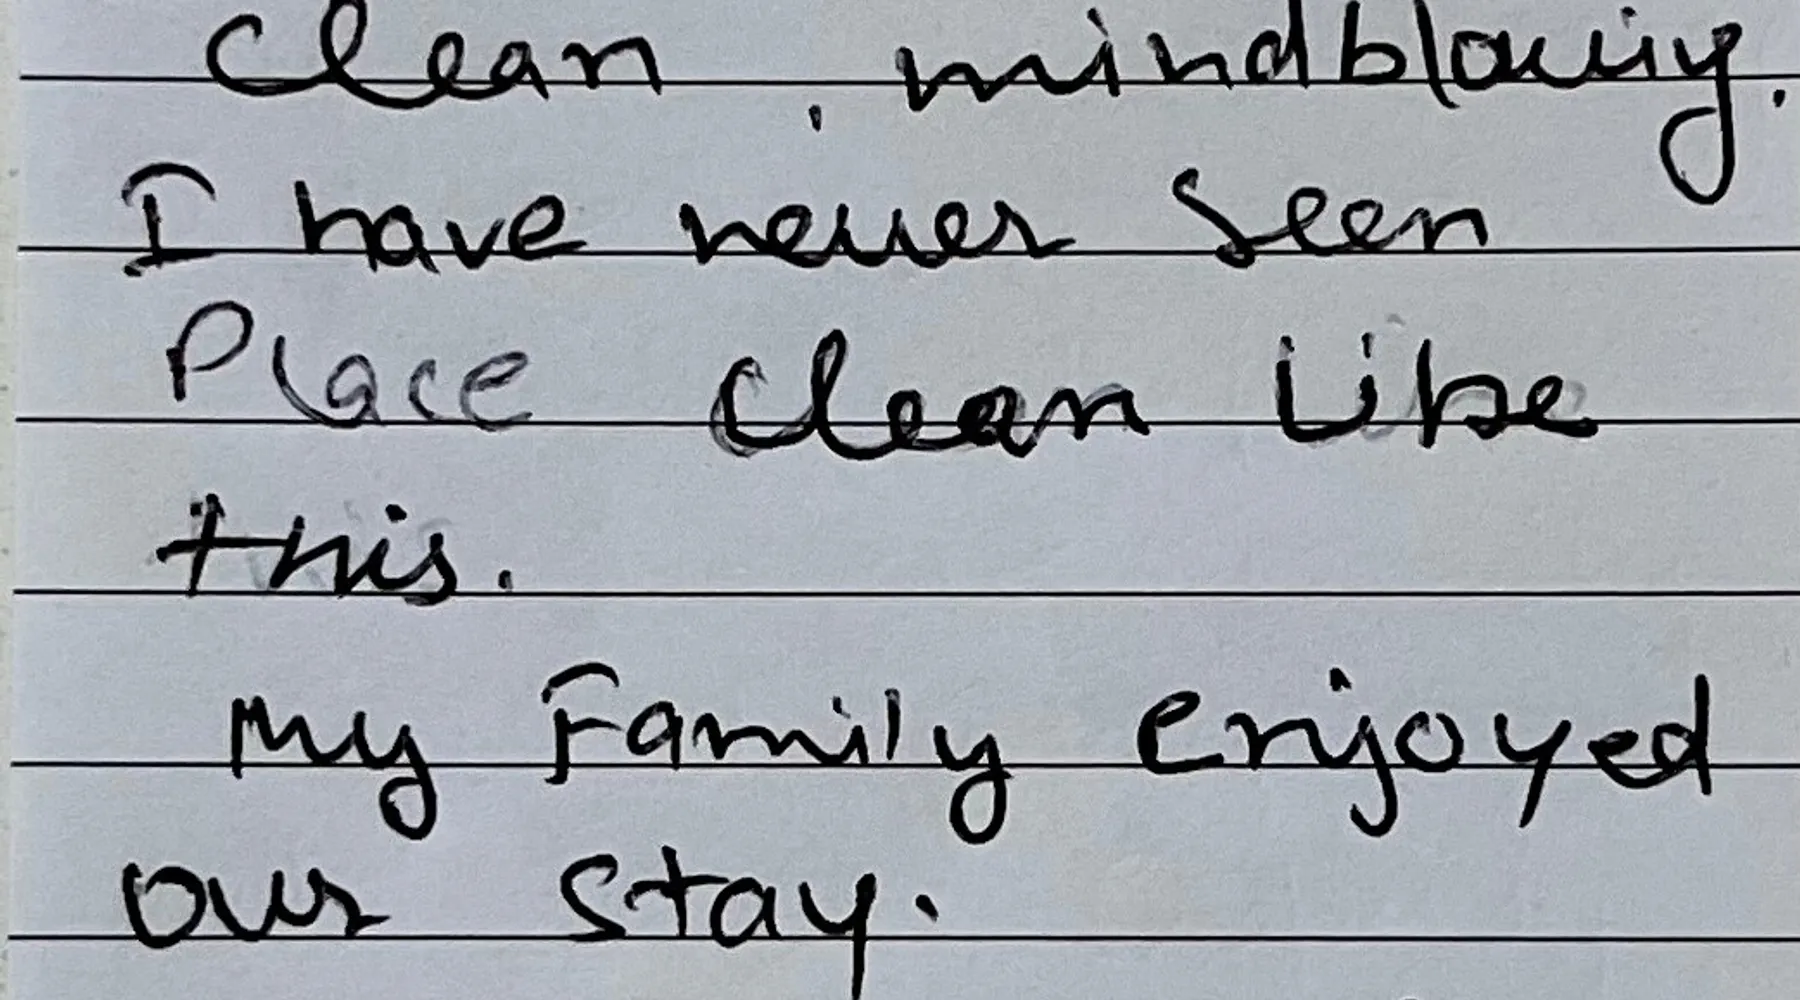 clean, mindblowing.
I have never seen
Place clean like
this.
My Family enjoyed
our stay.